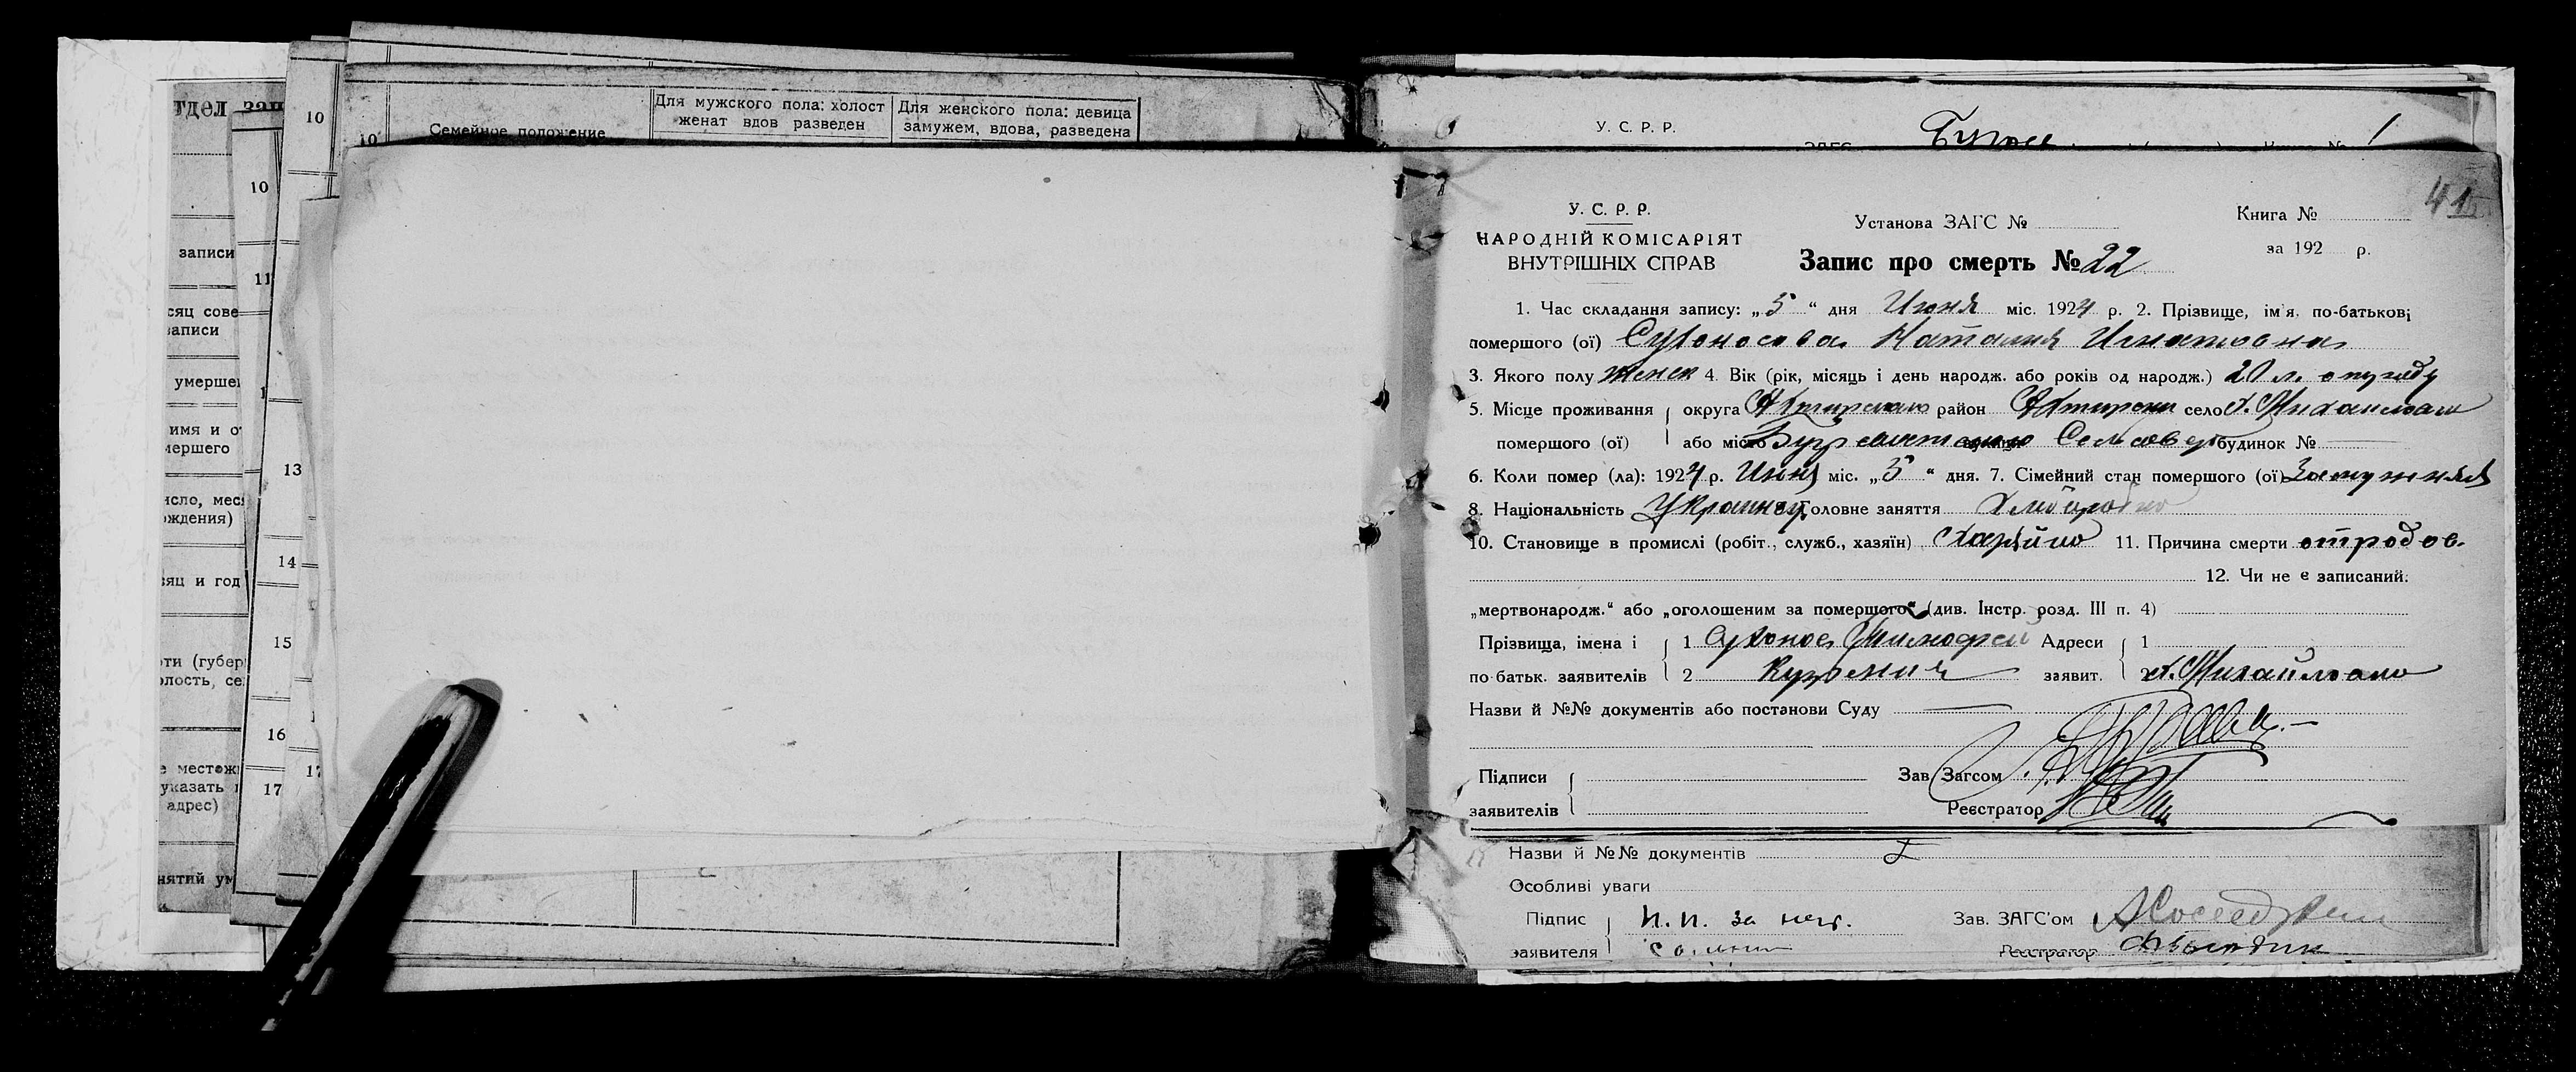 тдел зап
10
10
10
Семейное положение
Для мужского пола: холост
женат вдов разведен
Для женского пола: девица
замужем, вдова, разведена
записи
11
сяц сове
записи
умершег
имя и о
мершего
13
исло, мес
ождения)
14
яц и год
15
ти (губер
олость, се
16
е местож
указать
адрес)
17
17
нятий ум
У. С. Р. Р.
1
41
У. С. Р. Р.
НАРОДНІЙ КОМІСАРІЯТ
ВНУТРІШНІХ СПРАВ
Установа ЗАГС №
Книга №
за 192 р.
Запис про смерть № 22
1. Час складання запису: „5“ дня Июня міс. 1924 р. 2. Прізвище, ім'я, по-батькові
помершого (ої) Сухоносова Наталия Игнатовна
3. Якого полу женск 4. Вік (рік, місяць і день народж. або років од народж.) 20 л.
5. Місце проживання округа Ахтирского район Ахтирски село х. Михайловка
помершого (ої) або місто будинок №
6. Коли помер (ла): 1924 р. Июня міс. „5“ дня. 7. Сімейний стан помершого (ої) Замужняя
8. Національність Украинка Головне заняття Хлебороб
10. Становище в промислі (робіт., служб., хазяїн) 11. Причина смерти от родов.
12. Чи не є записаний.
„мертвонародж.“ або „оголошеним за помершого“ (див. Інстр. розд. III п. 4)
Прізвища, імена і 1 Сухонос Тимофей Адреси 1
по батьк. заявителів 2 Кузьмич заявит. 2 х. Михайловка
Назви й №№ документів або постанови Суду
Підписи
заявителів
Зав. Загсом
Реєстратор
Назви й №№ документів
Особливі уваги
Підпис
заявителя
Зав. ЗАГС'ом
Реєстратор